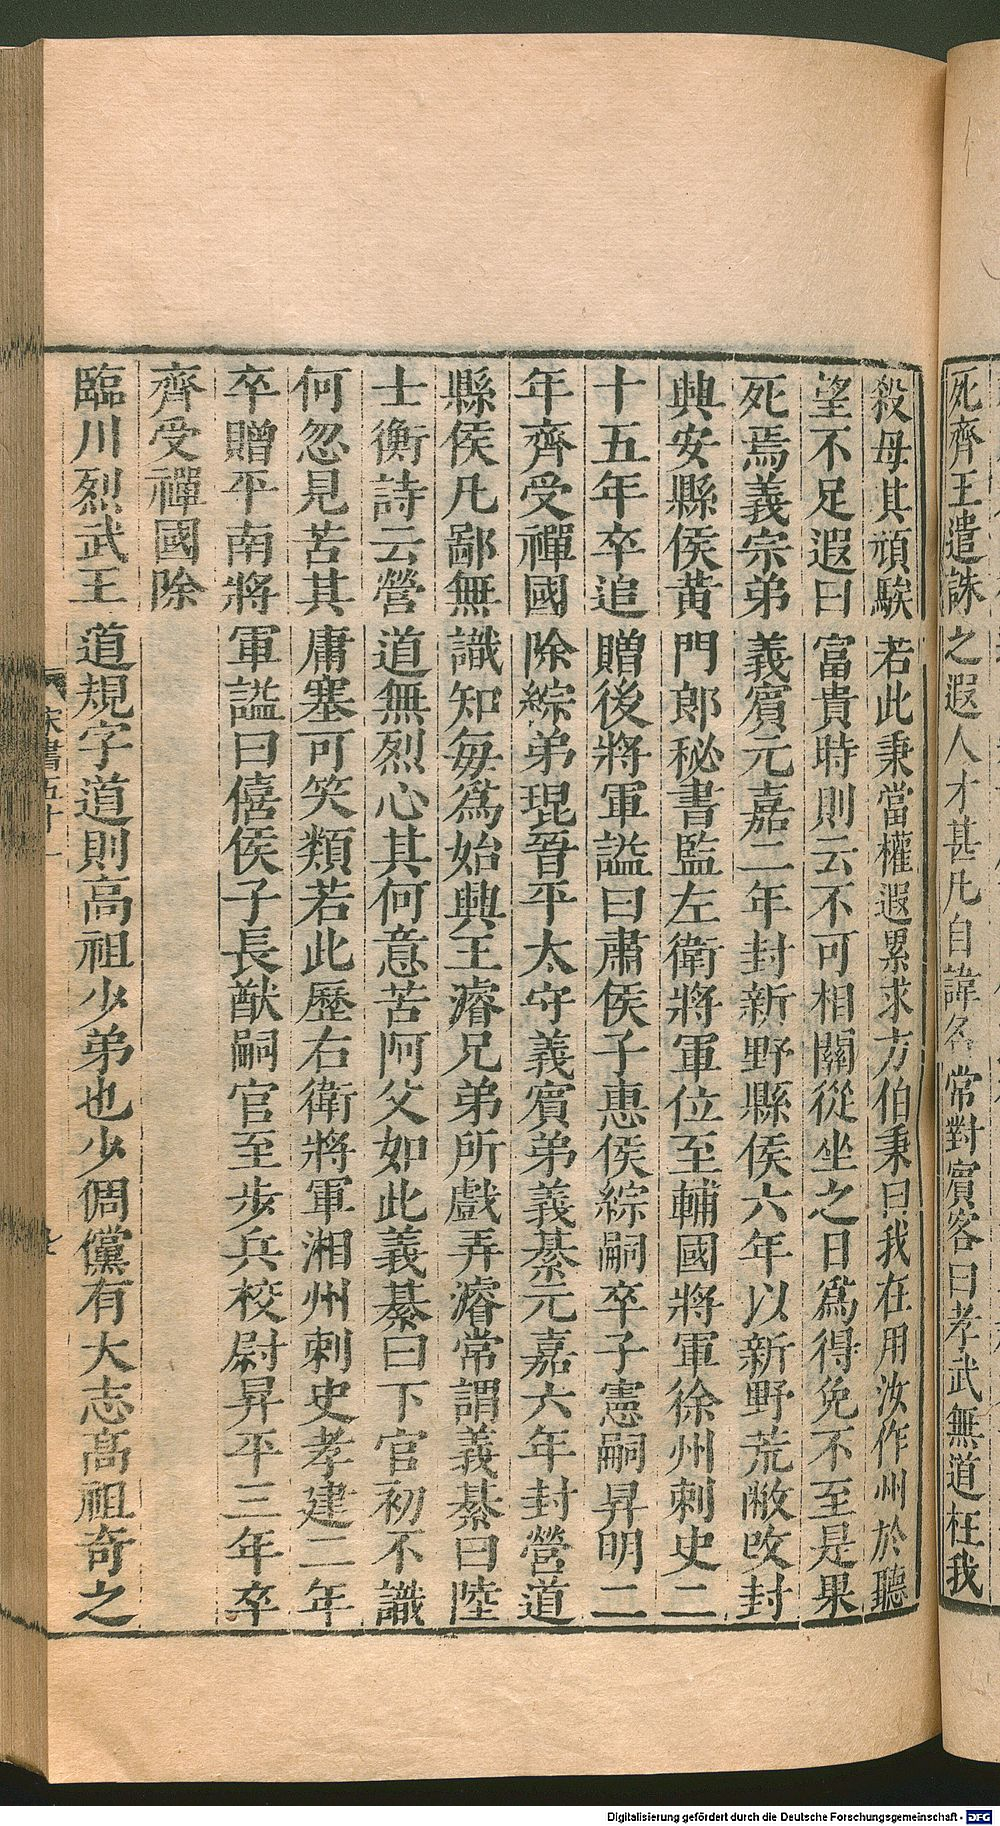 死齊王遣誅之遐人才甚凡自諱名常對賓客曰孝武無道枉我
殺母其頑騃若此秉當權遐累求方伯秉曰我在用汝作州於聽
望不足遐曰富貴時則云不可相關從坐之日爲得免不至是果
死焉義宗弟義賓元嘉二年封新野縣侯六年以新野荒敝改封
興安縣侯黃門郎秘書監左衛將軍位至輔國將軍徐州刺史二
十五年卒追贈後將軍謚曰肅侯子惠侯綜嗣卒子憲嗣昇明二
年齊受禪國除綜弟琨晉平太守義賓弟義綦元嘉六年封營道
縣侯凡鄙無識知每爲始興王濬兄弟所戲弄濬常謂義綦曰陸
士衡詩云營道無烈心其何意苦阿父如此義綦曰下官初不識
何忽見苦其庸塞可笑類若此歷右衛將軍湘州刺史孝建二年
卒贈平南將軍謚曰僖侯子長猷嗣官至步兵校尉昇平三年卒
齊受禪國除
臨川烈武王道規字道則高祖少弟也少倜儻有大志高祖奇之
宋書五十一
Digitalisierung gefördert durch die Deutsche Forschungsgemeinschaft - DFG